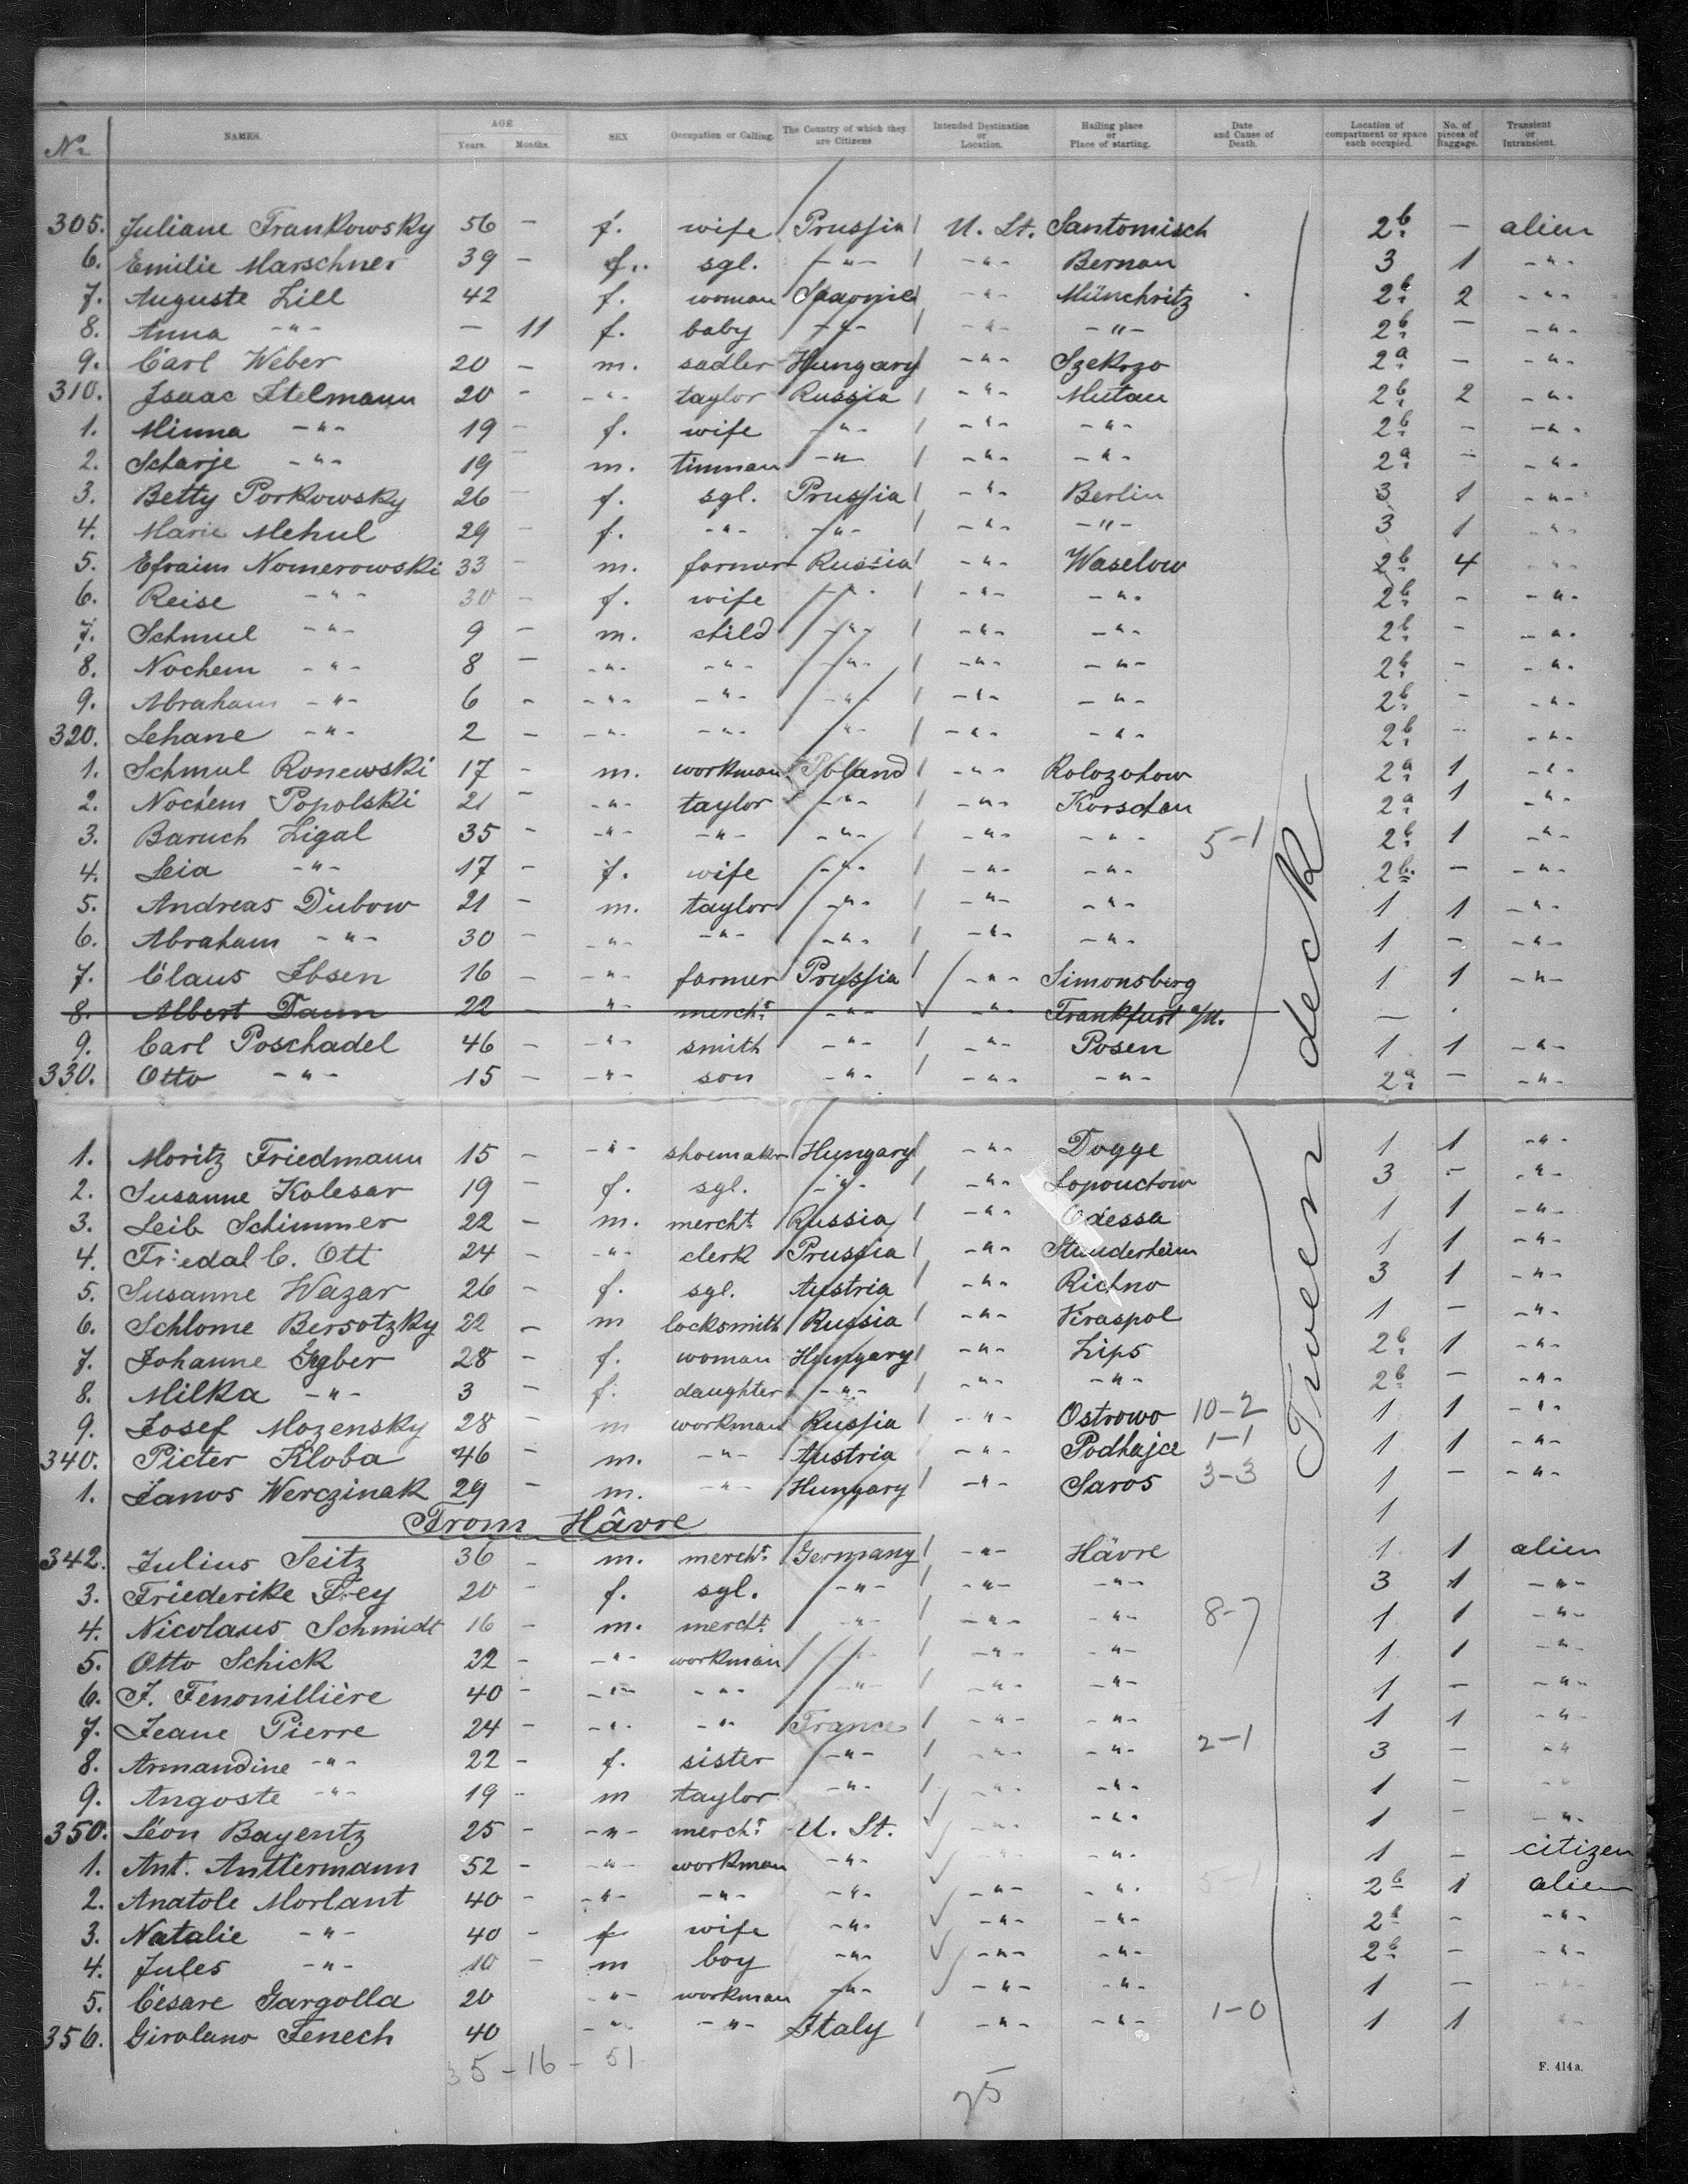 No. NAMES. AGE Years. Months. SEX Occupation or Calling. The Country of which they are Citizens Intended Destination or Location. Hailing place or Place of starting. Date and Cause of Death. Location of compartment or space each occupied. No. of pieces of Baggage. Transient or Intransient.
305. Juliane Frankowsky 56 - f. wife Prussia U. St. Santomisch 2b - alien
6. Emilie Marschner 39 - f. sgl. -"- -"- Bernau 3 1 -"-
7. Auguste Zill 42 f. woman Saxonie -"- Münchritz 2b 2 -"-
8. Anna -"- - 11 f. baby -"- -"- -"- 2b - -"-
9. Carl Weber 20 - m. sadler Hungary -"- Szekszo 2a - -"-
310. Isaac Itelmann 20 - -"- taylor Russia -"- Mutau 2b 2 -"-
1. Minna -"- 19 - f. wife -"- -"- -"- 2b - -"-
2. Scharje -"- 19 - m. tinman -"- -"- -"- 2a - -"-
3. Betty Porkowsky 26 - f. sgl. Prussia -"- Berlin 3 1 -"-
4. Marie Mehul 29 - f. -"- -"- -"- -"- 3 1 -"-
5. Efraim Nomerowski 33 - m. farmer Russia -"- Waselow 2b 4 -"-
6. Reise -"- 30 - f. wife -"- -"- -"- 2b - -"-
7. Schmul -"- 9 - m. child -"- -"- -"- 2b - -"-
8. Nochem -"- 8 - -"- -"- -"- -"- -"- 2b - -"-
9. Abraham -"- 6 - -"- -"- -"- -"- -"- 2b - -"-
320. Lehane -"- 2 - -"- -"- -"- -"- -"- 2b - -"-
1. Schmul Ronewski 17 - m. workman Poland -"- Rolozohow 2a 1 -"-
2. Nochem Popolski 21 - -"- taylor -"- -"- Korschau 2a 1 -"-
3. Baruch Zigal 35 - -"- -"- -"- -"- -"- 5-1 2b 1 -"-
4. Leia -"- 17 - f. wife -"- -"- -"- 2b - -"-
5. Andreas Dubow 21 - m. taylor -"- -"- -"- 1 1 -"-
6. Abraham -"- 30 - -"- -"- -"- -"- -"- 1 - -"-
7. Claus Ibsen 16 - -"- farmer Prussia -"- Simonsberg 1 1 -"-
8. Albert Daun 22 -"- mercht. -"- -"- Frankfurt a/M. -
9. Carl Poschadel 46 - -"- smith -"- -"- Posen 1 1 -"-
330. Otto -"- 15 - -"- son -"- -"- -"- 2a - -"-
Tween deck
1. Moritz Friedmann 15 - -"- shoemaker Hungary -"- Dogge 1 1 -"-
2. Susanne Kolesar 19 - f. sgl. -"- -"- Lopouctow 3 - -"-
3. Leib Schimmer 22 - m. mercht. Russia -"- Odessa 1 1 -"-
4. Friedal C. Ott 24 - -"- clerk Prussia -"- Stauderheim 1 1 -"-
5. Susanne Wazar 26 - f. sgl. Austria -"- Richno 3 1 -"-
6. Schlome Bersotzky 22 - m locksmith Russia -"- Kiraspol 1 - -"-
7. Johanne Gyber 28 - f. woman Hungary -"- Zips 2b 1 -"-
8. Milka -"- 3 - f. daughter -"- -"- -"- 2b - -"-
9. Josef Mozensky 28 - m workman Russia -"- Ostrowo 10-2 1 1 -"-
340. Picter Kloba 46 - m. -"- Austria -"- Podhajce 1-1 1 1 -"-
1. Janos Werczinak 29 - m. -"- Hungary -"- Saros 3-3 1 - -"-
From Hâvre 1
342. Julius Seitz 36 - m. mercht. Germany -"- Hâvre 1 1 alien
3. Friederike Frey 20 - f. sgl. -"- -"- -"- 3 1 -"-
4. Nicolaus Schmidt 16 - m. mercht. -"- -"- -"- 8-7 1 1 -"-
5. Otto Schick 22 - -"- workman -"- -"- -"- 1 1 -"-
6. F. Fenonillière 40 - -"- -"- -"- -"- -"- 1 - -"-
7. Jeane Pierre 24 - -"- -"- France -"- -"- 1 1 -"-
8. Armandine -"- 22 - f. sister -"- -"- -"- 2-1 3 - -"-
9. Angoste -"- 19 - m taylor -"- -"- -"- 1 - -"-
350. Léon Bayentz 25 - -"- mercht. U. St. -"- -"- 1 - -"-
1. Ant. Anttermann 52 - -"- workman -"- -"- -"- 1 - citizen
2. Anatole Morlant 40 - -"- -"- -"- -"- -"- 5-1 2b 1 alien
3. Natalie -"- 40 - f wife -"- -"- -"- 2b - -"-
4. Jules -"- 10 - m boy -"- -"- -"- 2b - -"-
5. Césare Gargolla 20 -"- workman -"- -"- -"- 1 - -"-
356. Girolano Fenech 40 -"- -"- Italy -"- -"- 1-0 1 1 -"-
35-16-51
25
F. 414 a.